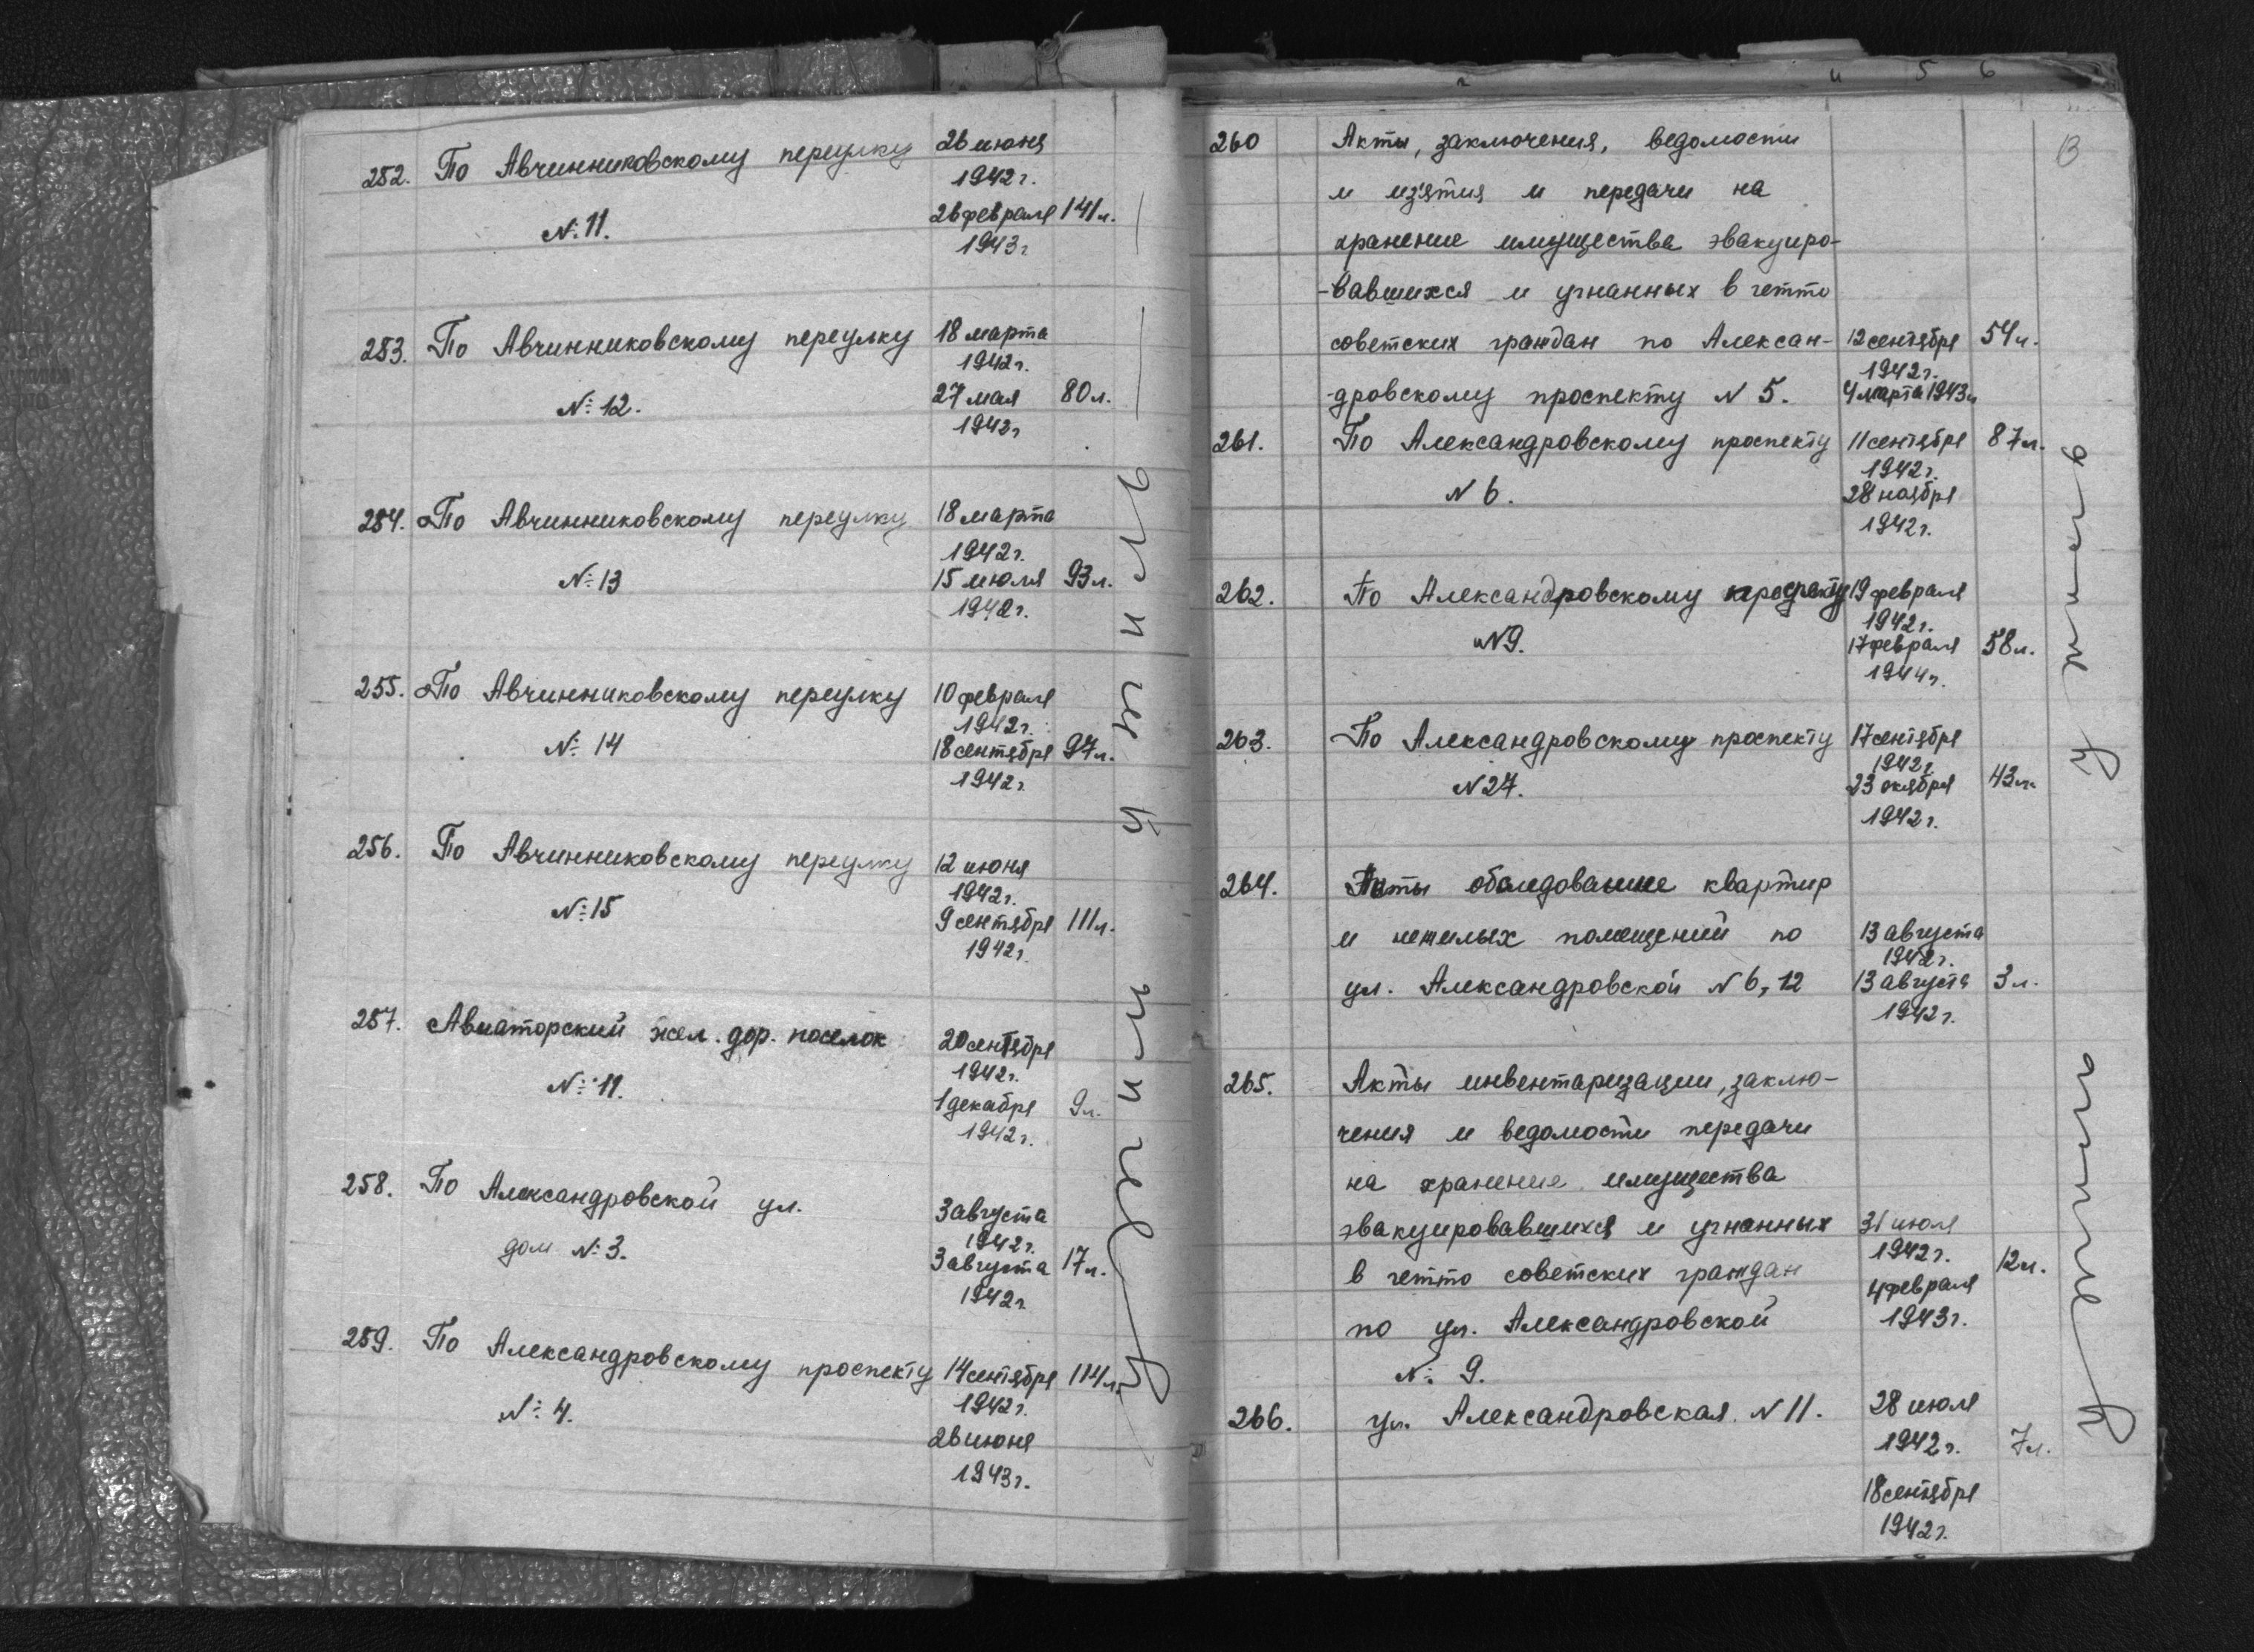 252. По Авчинниковскому переулку 26 июня
1942 г.
№ 11. 26 февраля 141 л.
1943 г
253. По Авчинниковскому переулку 18 марта
1942 г.
№ 12. 27 мая 80 л.
1943 г
254. По Авчинниковскому переулку 18 марта
1942 г.
№ 13 15 июля 93 л.
1942 г.
255. По Авчинниковскому переулку 10 февраля
1942 г.
№ 14 18 сентября 97 л.
1942 г
256. По Авчинниковскому переулку 12 июня
1942 г.
№ 15 9 сентября 111 л.
1942 г.
257. Авиаторский жел. дор. поселок 20 сентября
1942 г.
№ 11. 1 декабря 9 л.
1942 г.
258. По Александровской ул. 3 августа
1942 г.
дом № 3. 3 августа 17 л.
1942 г
259. По Александровскому проспекту 14 сентября 114 л.
№ 4. 1942 г.
26 июня
1943 г.
утиль
утиль
и 5 6
13
260 Акты, заключения, ведомости
и из'ятия и передачи на
хранение имущества эвакуиро-
-вавшихся и угнанных в гетто
советских граждан по Алексан- 12 сентября 54 л.
1942 г.
-дровскому проспекту N 5. 4 марта 1943 г
261. По Александровскому проспекту 11 сентября 87 л.
1942 г.
N 6. 28 ноября
1942 г.
262. По Александровскому проспекту 19 февраля
1942 г.
N 9. 17 февраля 58 л.
1944 г.
263. По Александровскому проспекту 17 сентября
1942 г
N 27. 23 октября 43 л.
1942 г.
264. Акты обследование квартир
и нежилых помещений по 13 августа
1942 г.
ул. Александровской N 6, 12 13 августа 3 л.
1942 г.
265. Акты инвентаризации, заклю-
чения и ведомости передачи
на хранение имущества
эвакуировавшихся и угнанных 31 июля
1942 г.
в гетто советских граждан 12 л.
4 февраля
по ул. Александровской 1943 г.
№ 9.
266. ул. Александровская N 11. 28 июля
1942 г. 7 л.
18 сентября
1942 г.
утиль
утиль